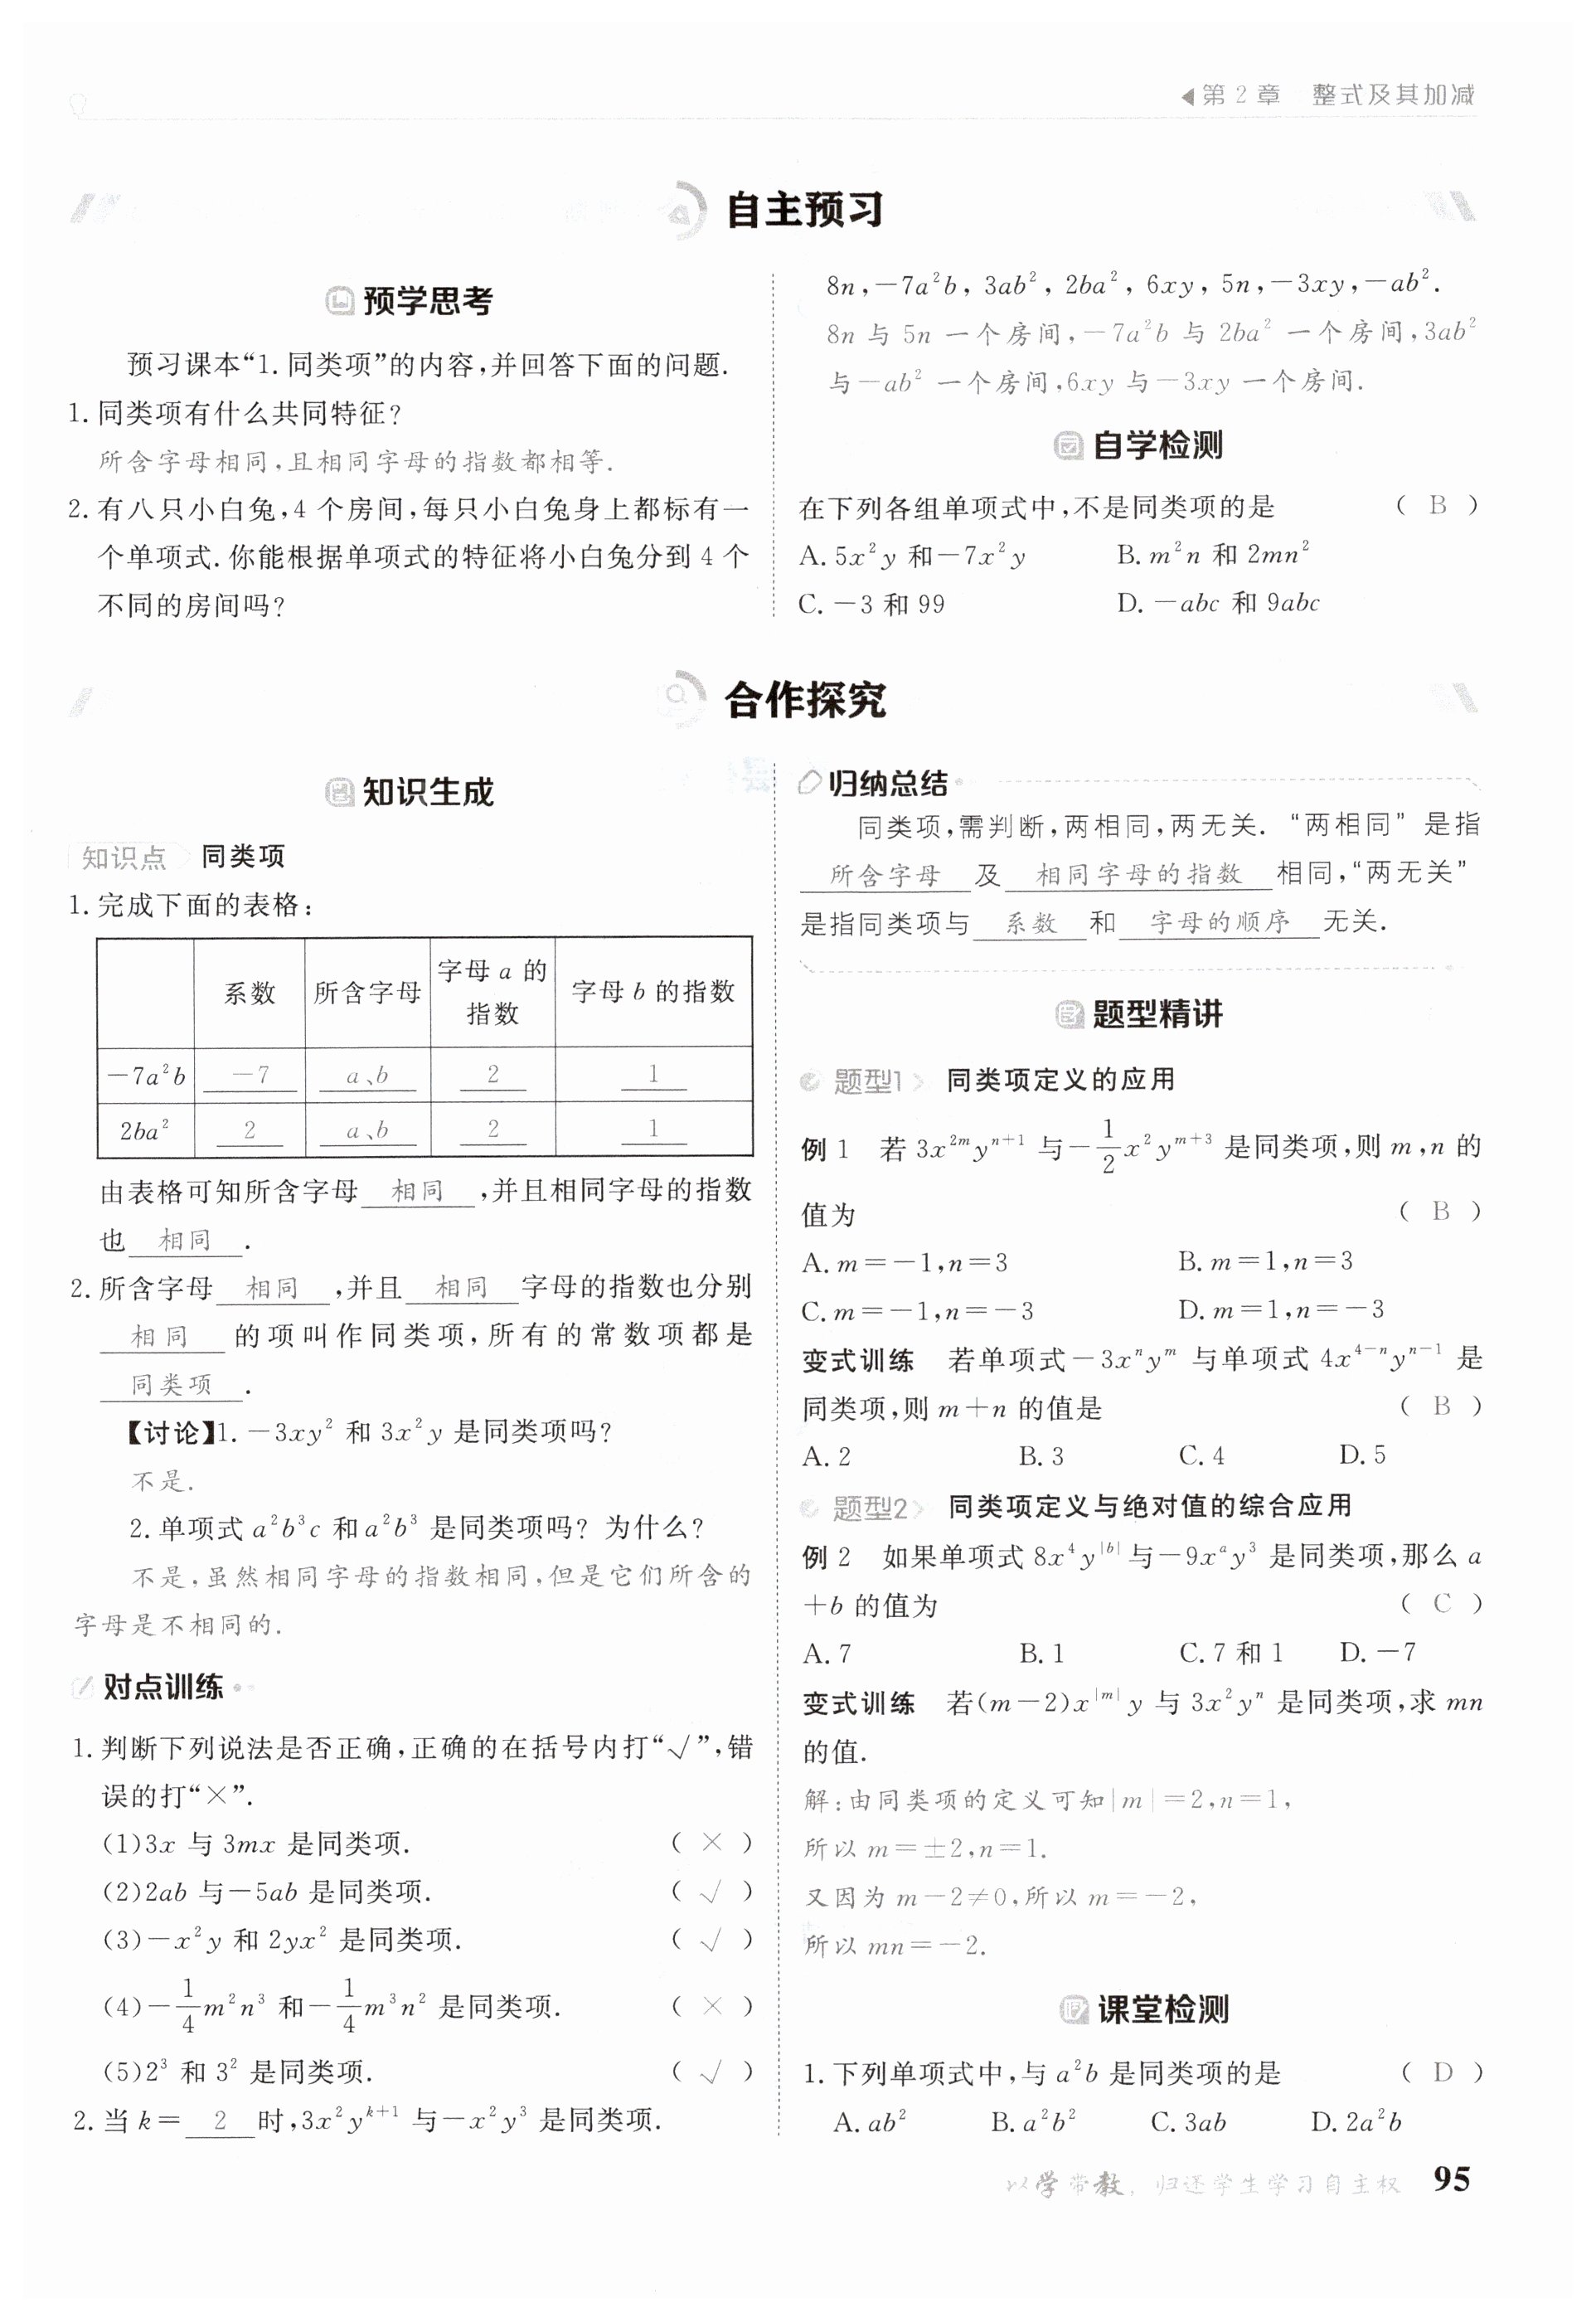 ◀第2章 整式及其加减
自主预习
预学思考
预习课本“1.同类项”的内容,并回答下面的问题.
1.同类项有什么共同特征?
所含字母相同,且相同字母的指数都相等.
2.有八只小白兔,4个房间,每只小白兔身上都标有一
个单项式.你能根据单项式的特征将小白兔分到4个
不同的房间吗?
8n,-7a²b,3ab²,2ba²,6xy,5n,-3xy,-ab².
8n与5n一个房间,-7a²b与2ba²一个房间,3ab²
与-ab²一个房间,6xy与-3xy一个房间.
自学检测
在下列各组单项式中,不是同类项的是 ( B )
A.5x²y和-7x²y B.m²n和2mn²
C.-3和99 D.-abc和9abc
合作探究
知识生成
知识点 同类项
1.完成下面的表格:
系数 所含字母 字母a的指数 字母b的指数
-7a²b -7 a、b 2 1
2ba² 2 a、b 2 1
由表格可知所含字母 相同 ,并且相同字母的指数
也 相同 .
2.所含字母 相同 ,并且 相同 字母的指数也分别
相同 的项叫作同类项,所有的常数项都是
同类项 .
【讨论】1.-3xy²和3x²y是同类项吗?
不是.
2.单项式a²b³c和a²b³是同类项吗?为什么?
不是,虽然相同字母的指数相同,但是它们所含的
字母是不相同的.
对点训练
1.判断下列说法是否正确,正确的在括号内打“√”,错
误的打“×”.
(1)3x与3mx是同类项. ( × )
(2)2ab与-5ab是同类项. ( √ )
(3)-x²y和2yx²是同类项. ( √ )
(4)-1/4m²n³和-1/4m³n²是同类项. ( × )
(5)2³和3²是同类项. ( √ )
2.当k= 2 时,3x²yᵏ⁺¹与-x²y³是同类项.
归纳总结
同类项,需判断,两相同,两无关.“两相同”是指
所含字母 及 相同字母的指数 相同,“两无关”
是指同类项与 系数 和 字母的顺序 无关.
题型精讲
题型1 同类项定义的应用
例1 若3x²ᵐyⁿ⁺¹与-1/2x²yᵐ⁺³是同类项,则m,n的
值为 ( B )
A.m=-1,n=3 B.m=1,n=3
C.m=-1,n=-3 D.m=1,n=-3
变式训练 若单项式-3xⁿyᵐ与单项式4x⁴⁻ⁿyⁿ⁻¹是
同类项,则m+n的值是 ( B )
A.2 B.3 C.4 D.5
题型2 同类项定义与绝对值的综合应用
例2 如果单项式8x⁴y^|b|与-9xᵃy³是同类项,那么a
+b的值为 ( C )
A.7 B.1 C.7和1 D.-7
变式训练 若(m-2)x^|m|y与3x²yⁿ是同类项,求mn
的值.
解:由同类项的定义可知|m|=2,n=1,
所以m=±2,n=1.
又因为m-2≠0,所以m=-2,
所以mn=-2.
课堂检测
1.下列单项式中,与a²b是同类项的是 ( D )
A.ab² B.a²b² C.3ab D.2a²b
以学带教,归还学生学习自主权 95